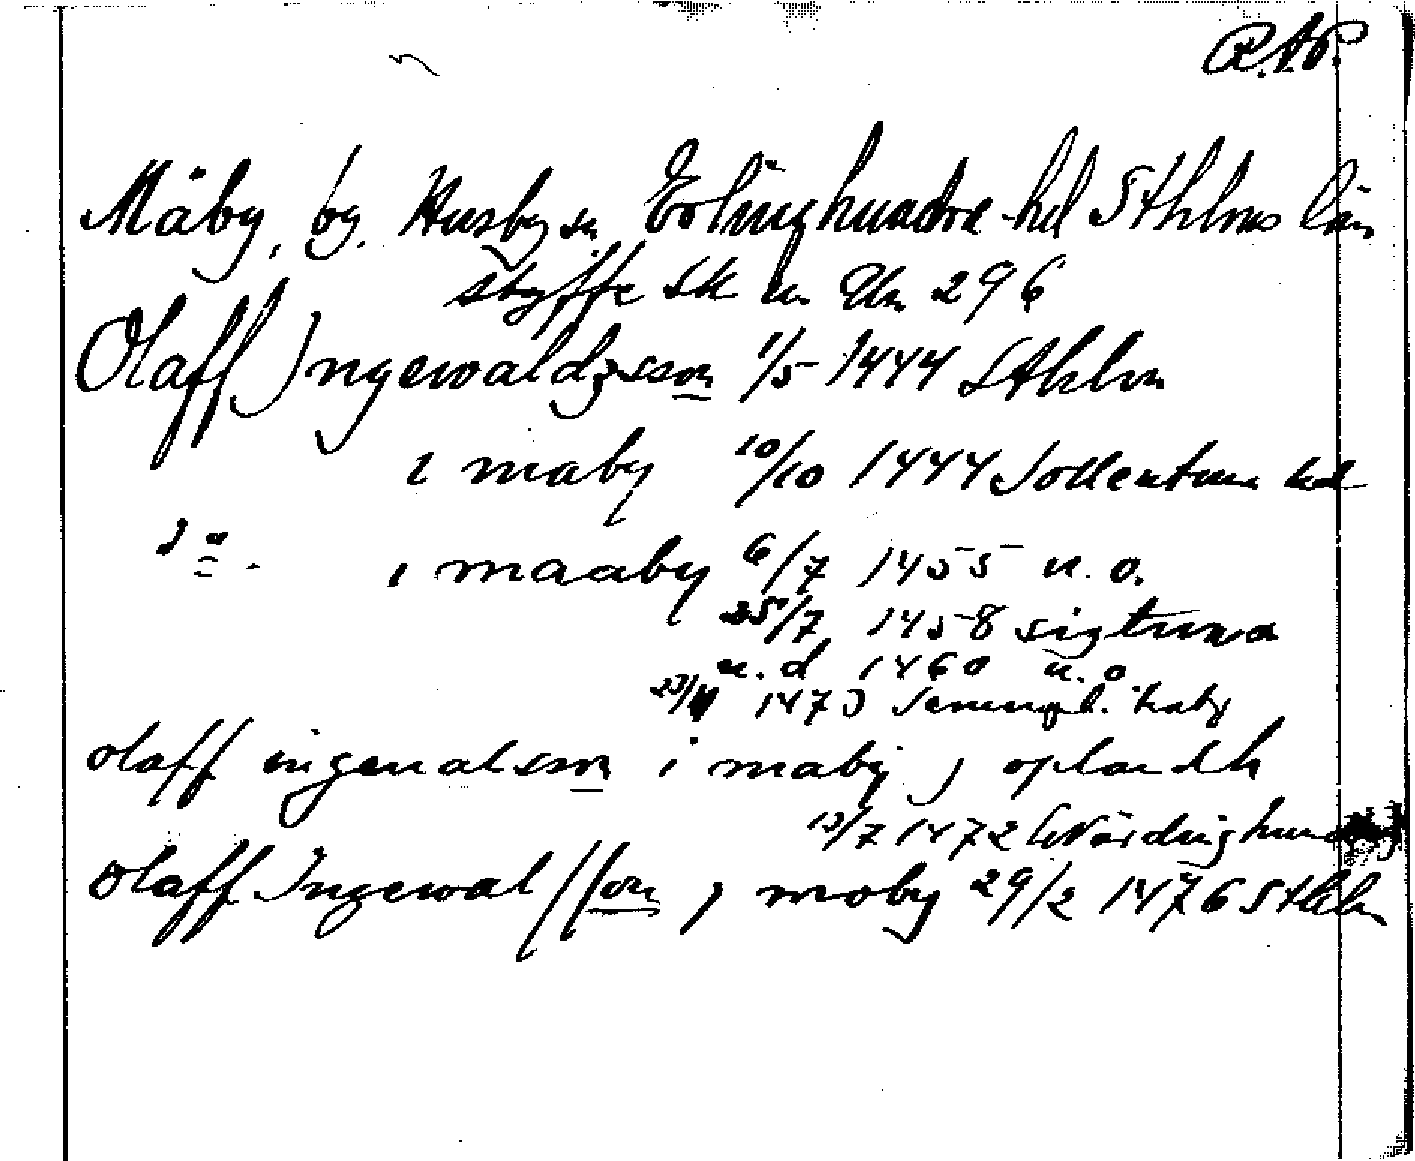 R.A.P.
Mäby, by. Husby sn. Erlinghundra hd Sthlms län
Styffe Sk u. Un 296
Olaff Ingewaldzsson 1/5 1444 Sthlm
i maby 10/10 1444 Sollentuna hd
i maaby 6/7 1455 u.o.
25/7 1458 sigtuna
u.d 1460 u.o.
1473
olaff ingeualsson i maby, oplandh
13/7 1472 Wärdinghundra
Olaff Ingewalsson, moby 29/2 1476 Sthlm